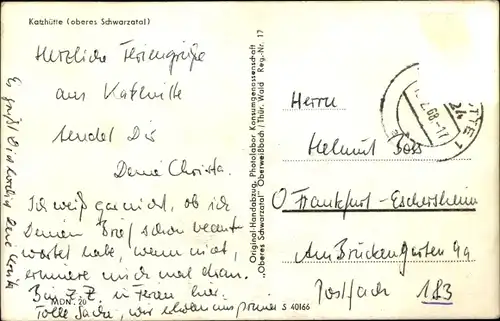 Katzhütte (oberes Schwarzatal)
Herzliche Feriengrüße
aus Katzhütte
sendet Dir
Deine Christa.
Ich weiß gar nicht, ob ich
Deinen Brief schon beant-
wortet habe, wenn nicht,
erinnere mich mal daran.
Bin z. Z. in Ferien hier.
Tolle Sache, wir
MDN. 20
S 40166
Es grüßt Dich
Original-Handabzug, Photolabor Konsumgenossenschaft
„Oberes Schwarzatal“ Oberweißbach/Thür. Wald Reg.-Nr. 17
TTE 1
2.68-17
Herrn
Helmut
Frankfurt-Eschersheim
Am Brückengarten 9a
Postfach 183